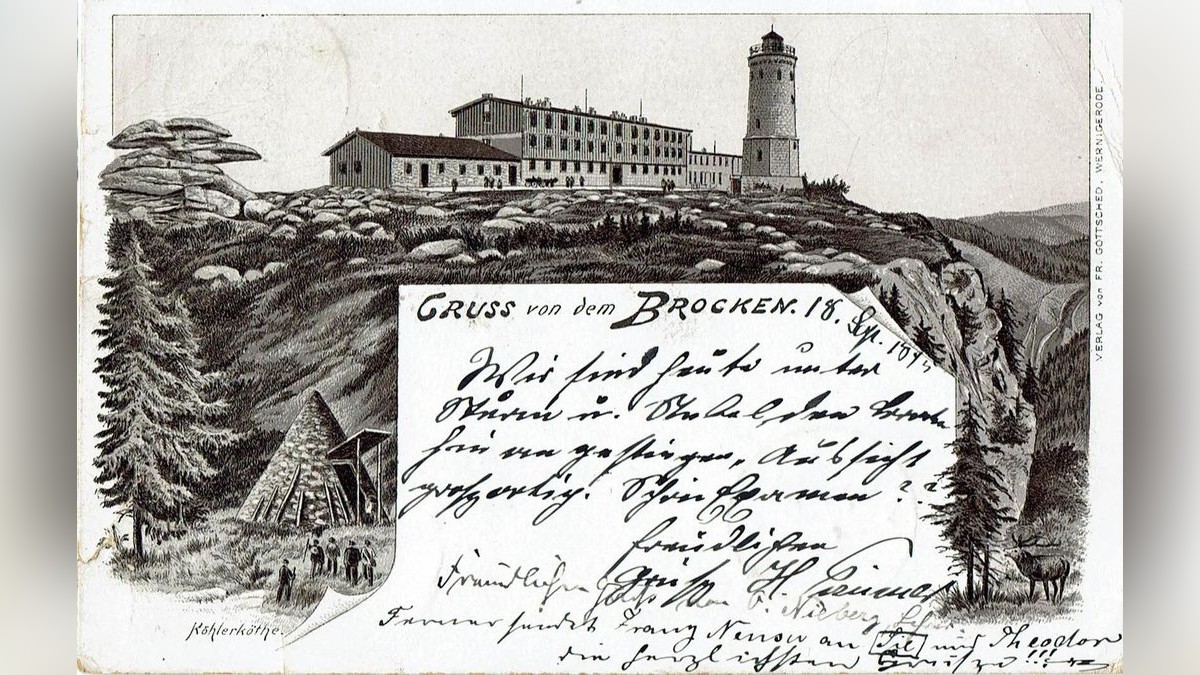 GRUSS von dem BROCKEN. 18. Sept. 189
Wir sind heute unter
Sturm u. Nebel den
hinan gestiegen. Aussicht
großartig. Examen ? ?
Freundlichen
Gruß H.
Freundlichen Gruß von
Ferner sendet Franz an und Theodor
die herzlichsten Grüße!!!
Köhlerköthe.
VERLAG von FR. GOTTSCHED, WERNIGERODE.